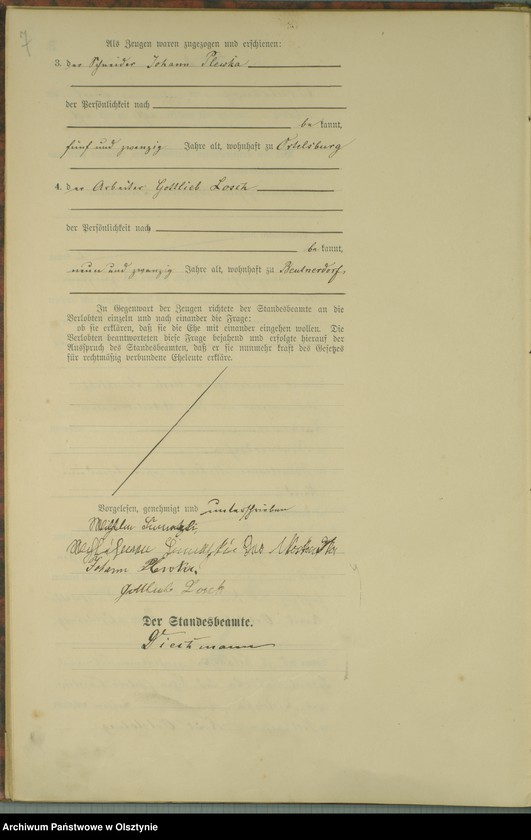 7
Als Zeugen waren zugezogen und erschienen:
3. der Schneider Johann Plewka
der Persönlichkeit nach
be kannt,
fünf und zwanzig Jahre alt, wohnhaft zu Ortelsburg
4. der Arbeiter Gottlieb Losch
der Persönlichkeit nach
be kannt,
neun und zwanzig Jahre alt, wohnhaft zu Beutnerdorf,
In Gegenwart der Zeugen richtete der Standesbeamte an die
Verlobten einzeln und nach einander die Frage:
ob sie erklären, daß sie die Ehe mit einander eingehen wollen. Die
Verlobten beantworteten diese Frage bejahend und erfolgte hierauf der
Ausspruch des Standesbeamten, daß er sie nunmehr kraft des Gesetzes
für rechtmäßig verbundene Eheleute erkläre.
Vorgelesen, genehmigt und unterschrieben
Wilhelm
Johann
Gottlieb Losch
Der Standesbeamte.
Archiwum Państwowe w Olsztynie